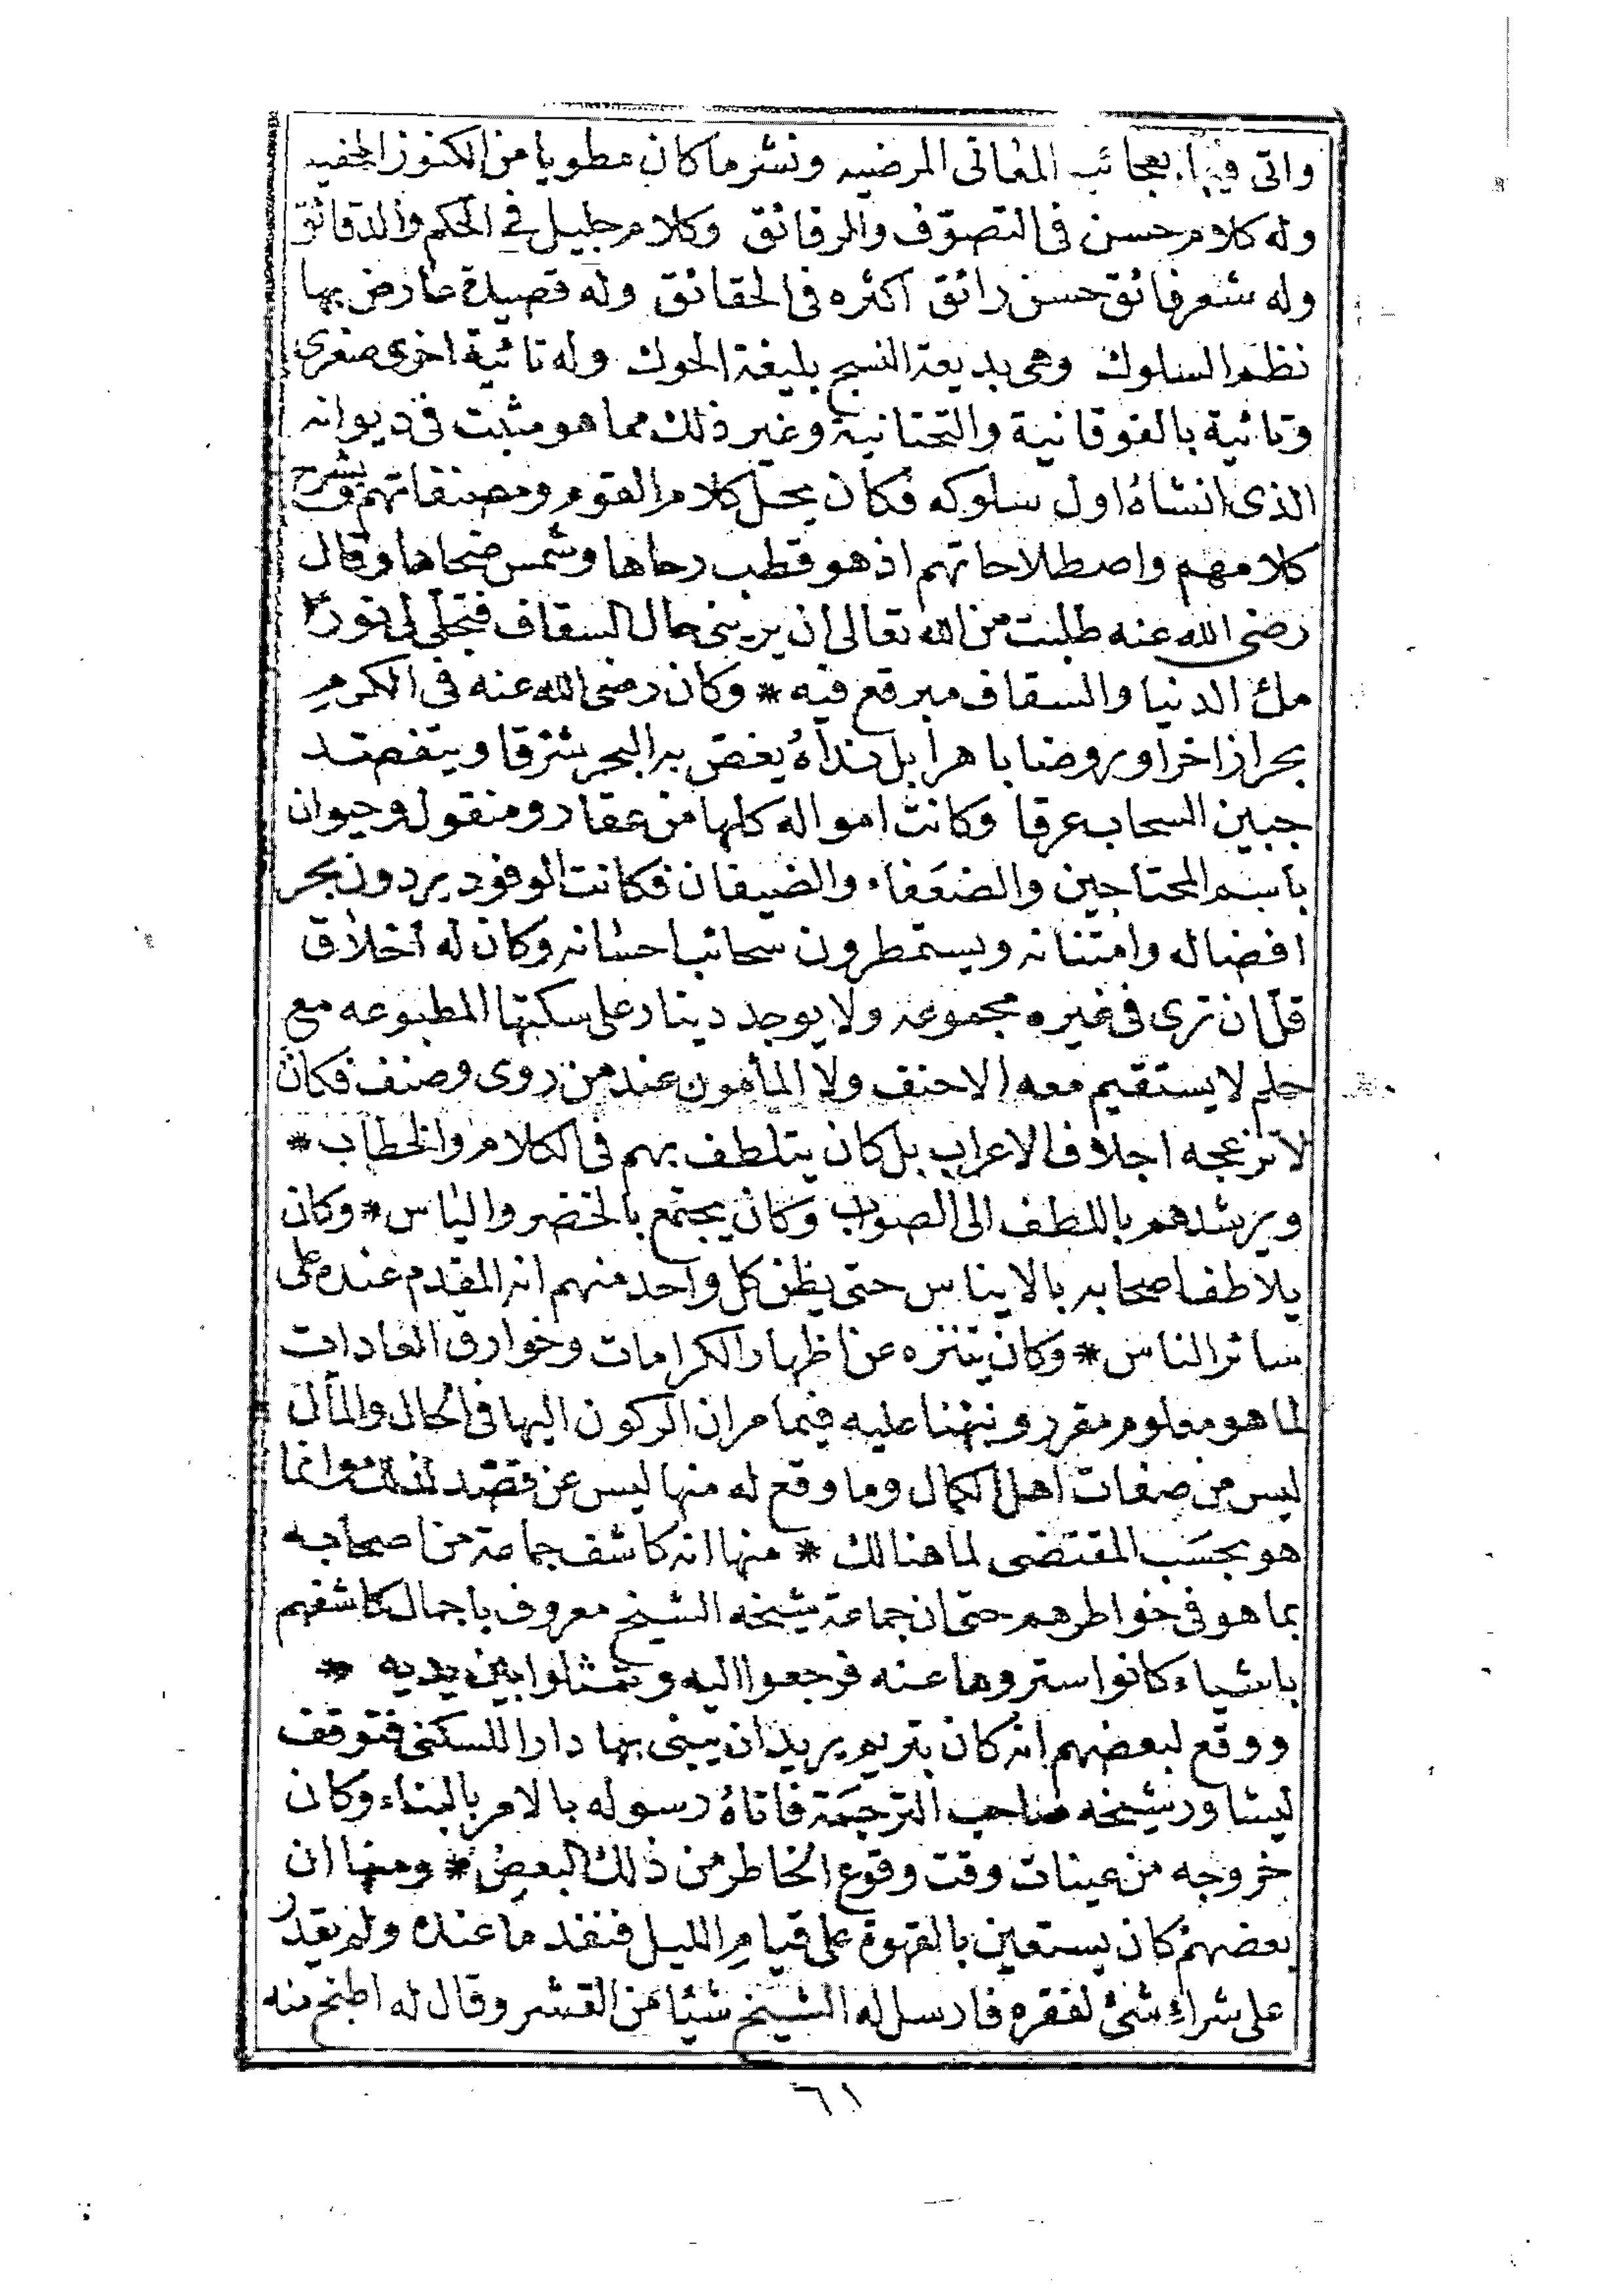 واتى فيها بعجائب المعانى المرضيه ونشر ما كان مطويا من الكنوز الخفيه
وله كلام حسن فى التصوّف والرقائق وكلام جليل فى الحكم والدقائق
وله شعر فائق حسن رائق اكثره فى الحقائق وله قصيدة عارض بها
نظم السلوك وهى بديعة النسج بليغة الحوك وله تائية اخرى صغرى
وتائية بالفوقانية والتحتانية وغير ذلك مما هو مثبت فى ديوانه
الذى انشاهُ اول سلوكه فكان يحل كلام القوم ومصنفاتهم ويشرح
كلامهم واصطلاحاتهم اذ هو قطب رحاها وشمس ضحاها وقال
رضى الله عنه طلبت من الله تعالى ان يرينى حال السقاف فتجلى لى نورٌ
ملئ الدنيا والسقاف مبرقع فيه * وكان رضى الله عنه فى الكرم
بحرا زاخرا وروضا باهرا بل نداهُ يغص به البحر شرقا ويتفصد
جبين السحاب عرقا وكانت امواله كلها من عقار ومنقول وحيوان
باسم المحتاجين والضعَفاء والضيفان فكانت الوفود يردون بحر
افضاله وامتنانه ويستمطرون سحائب احسانه وكان له اخلاق
قلّ ان ترى فى غيره مجموعه ولا يوجد دينار على سكتها المطبوعه مع
حلم لا يستقيم معه الاحنف ولا المأمون عند من روى وصنف فكان
لا تزعجه اجلاف الاعراب بل كان يتلطف بهم فى الكلام والخطاب *
ويرشدهم باللطف الى الصواب وكان يجتمع بالخضر والياس * وكان
يلاطف اصحابه بالايناس حتى يظن كل واحد منهم انه المقدم عنده على
سائر الناس * وكان يتنزه عن اظهار الكرامات وخوارق العادات
لما هو معلوم مقرر ونبهنا عليه فيما مر ان الركون اليها فى الحال والمآل
ليس من صفات اهل الكمال وما وقع له منها ليس عن قصد لذلك وانما
هو بحسَب المقتضى لما هنالك * منها انه كاشف جماعة من اصحابه
بما هو فى خواطرهم حتى ان جماعة شيخه الشيخ معروف باجمال كاشفهم
باشياء كانوا ستروها عنه فرجعوا اليه وتمثلوا بين يديه *
ووقع لبعضهم انه كان بتريم يريد ان يبنى بها دارا للسكنى فتوقف
ليشاور شيخه صاحب الترجمَة فاتاهُ رسوله بالامر بالبناء وكان
خروجه من عينات وقت وقوع الخاطر من ذلك البعض * ومنها ان
بعضهم كان يستعين بالقهوة على قيام الليل فنفد ما عنده ولم يقدر
على شراءِ شئ لفقره فارسل له الشيخ شيئا من القشر وقال له اطبخ منه
٦١